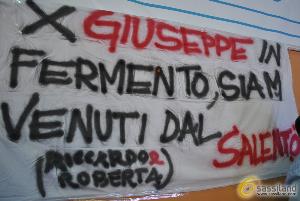 X GIUSEPPE IN
FERMENTO, SIAM
VENUTI DAL SALENTO
(RICCARDO e
ROBERTA)
sassiland